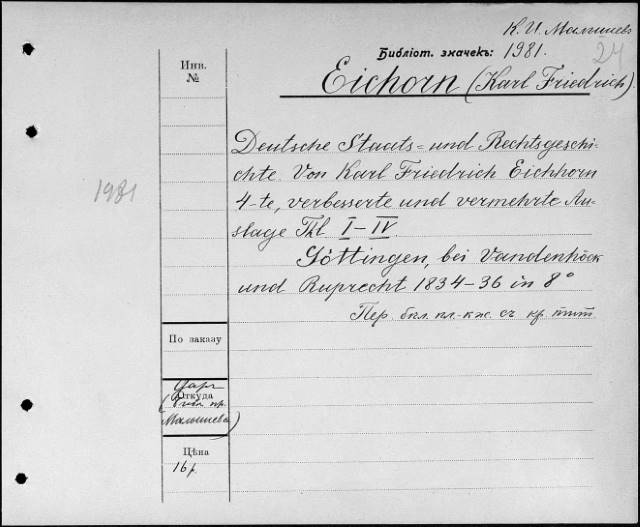 К. И. Малышевъ
Библіот. значекъ: 1981.
24
Eichorn (Karl Friedrich).
Инв.
№
1981
Deutsche Staats= und Rechtsgeschi-
chte. Von Karl Friedrich Eichhorn
4-te, verbesserte und vermehrte Au-
slage Thl. I–IV.
Göttingen, bei Vandenhöck
und Ruprecht 1834–36 in 8°
Пер. бкл. пл.-кж. съ кр. тит.
По заказу
Даръ
Откуда
Малышева)
Цѣна
16 р.